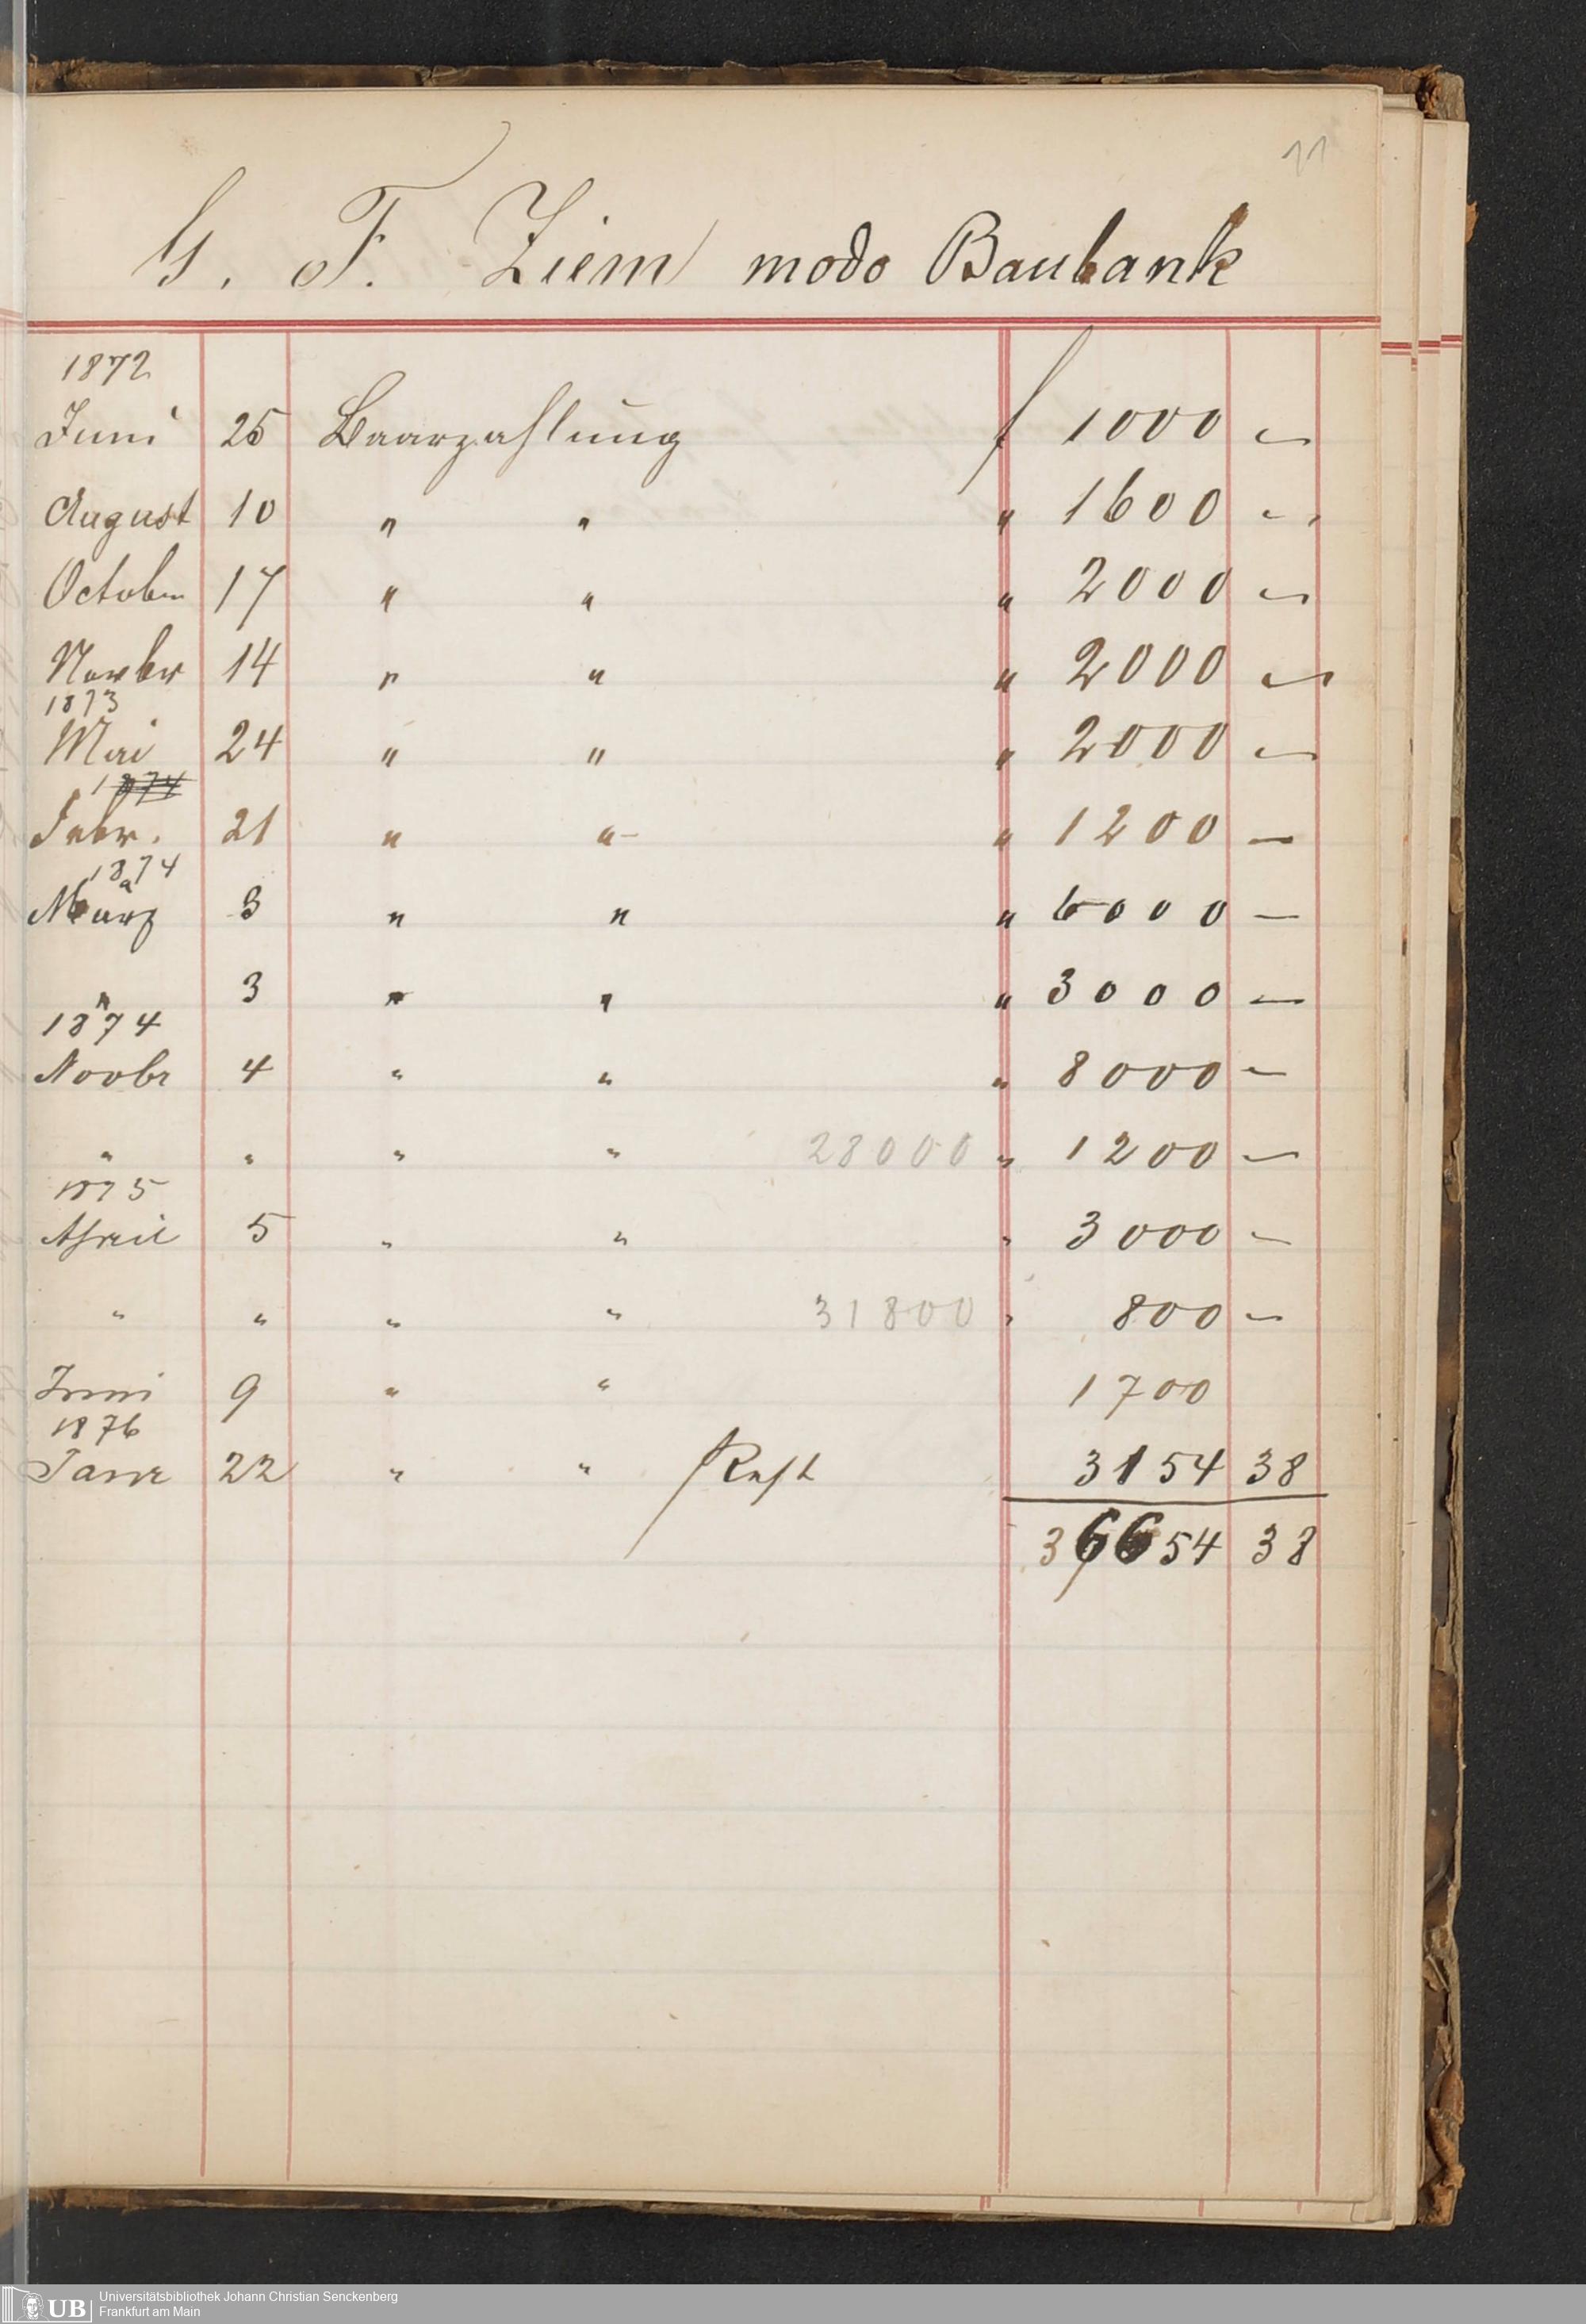 11
G. F. Ziem modo Baubank
1872
Juni 25 Baarzahlung f 1000 —
August 10 " " " 1600 —
October 17 " " " 2000 —
Novbr 14 " " " 2000 —
1873
Mai 24 " " " 2000 —
1874
Febr. 21 " " " 1200 —
1874
März 3 " " " 6000 —
" 3 " " " 3000 —
1874
Novbr 4 " " " 8000 —
" " " " 28000 " 1200 —
1875
April 5 " " " 3000 —
" " " " 31800 " 800 —
Juni 9 " " 1700
1876
Janr 22 " " Rest 3154 38
36654 38
UB Universitätsbibliothek Johann Christian Senckenberg
Frankfurt am Main